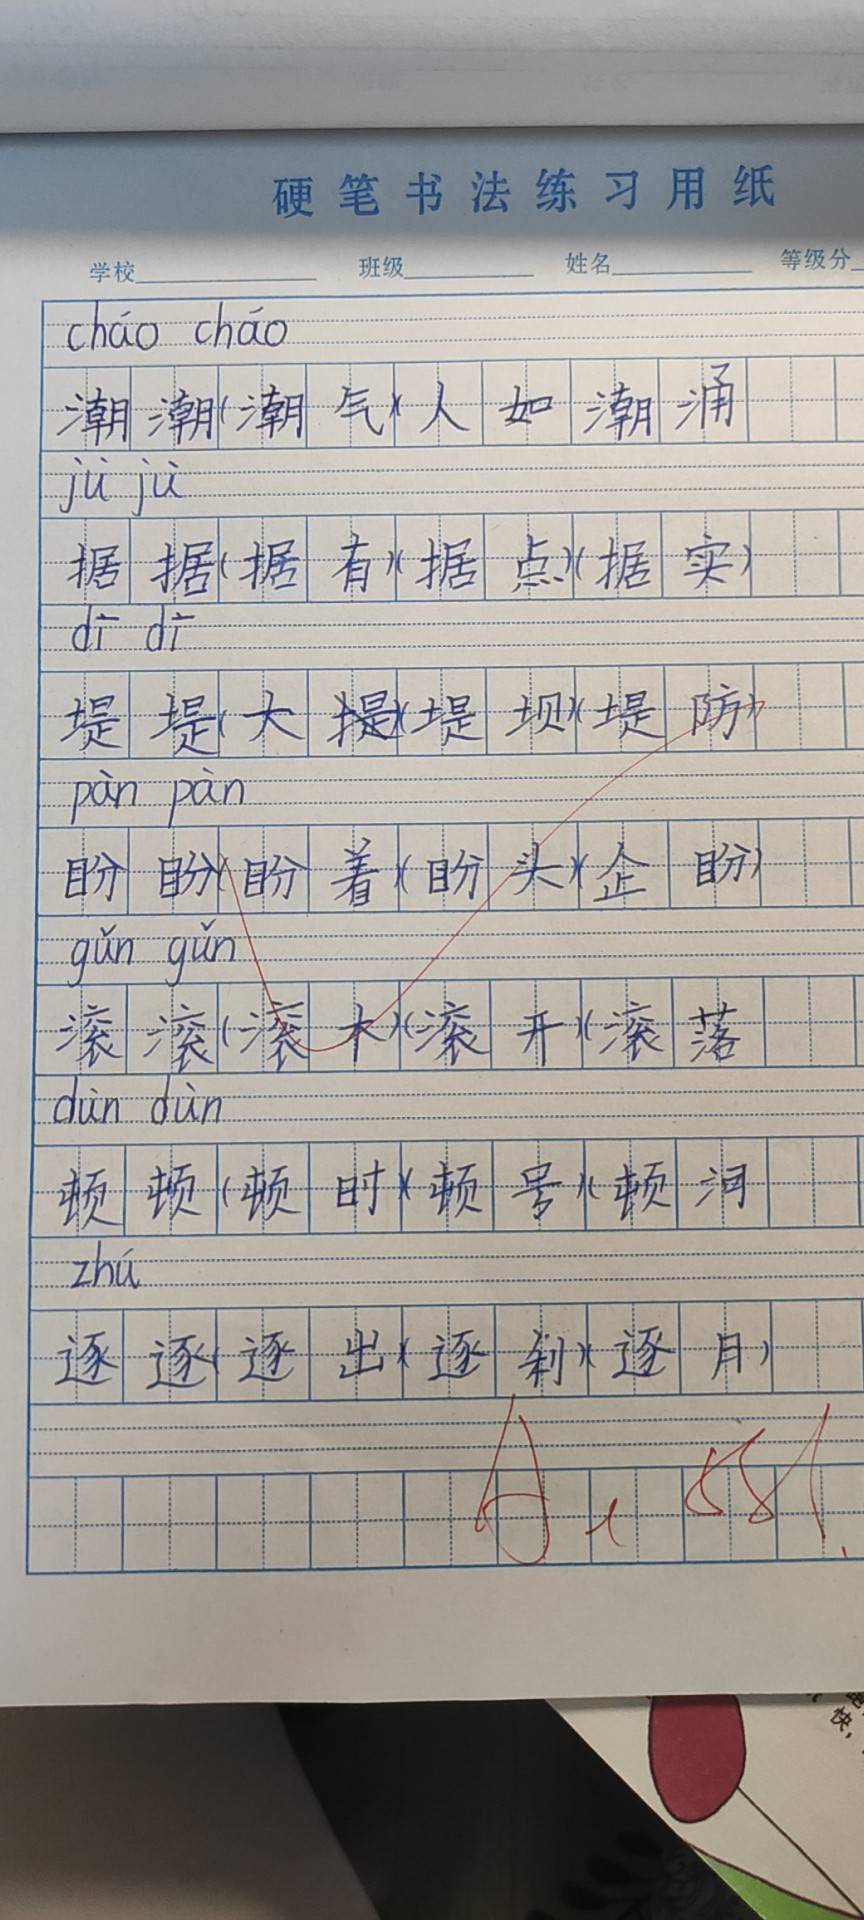 硬笔书法练习用纸
学校 班级 姓名 等级分
cháo cháo
潮潮(潮气)(人如潮涌
jù jù
据据(据有)(据点)(据实)
dī dī
堤堤(大提)(堤坝)(堤防)
pàn pàn
盼盼(盼着)(盼头)(企盼)
gǔn gǔn
滚滚(滚木)(滚开)(滚落
dùn dùn
顿顿(顿时)(顿号)(顿河
zhú
逐逐(逐出)(逐刹)(逐月)
A
快,